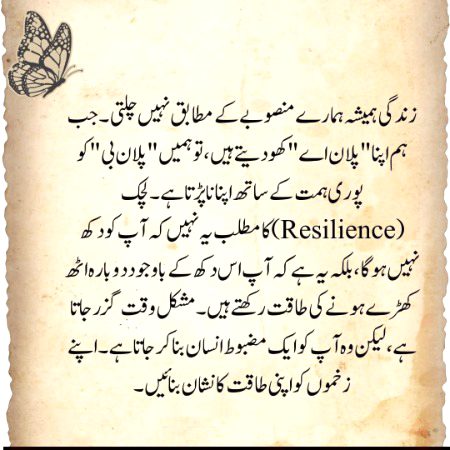 زندگی ہمیشہ ہمارے منصوبے کے مطابق نہیں چلتی۔ جب
ہم اپنا "پلان اے" کھو دیتے ہیں، تو ہمیں "پلان بی" کو
پوری ہمت کے ساتھ اپنانا پڑتا ہے۔ لچک
(Resilience) کا مطلب یہ نہیں کہ آپ کو دکھ
نہیں ہوگا، بلکہ یہ ہے کہ آپ اس دکھ کے باوجود دوبارہ اٹھ
کھڑے ہونے کی طاقت رکھتے ہیں۔ مشکل وقت گزر جاتا
ہے، لیکن وہ آپ کو ایک مضبوط انسان بنا کر جاتا ہے۔ اپنے
زخموں کو اپنی طاقت کا نشان بنائیں۔